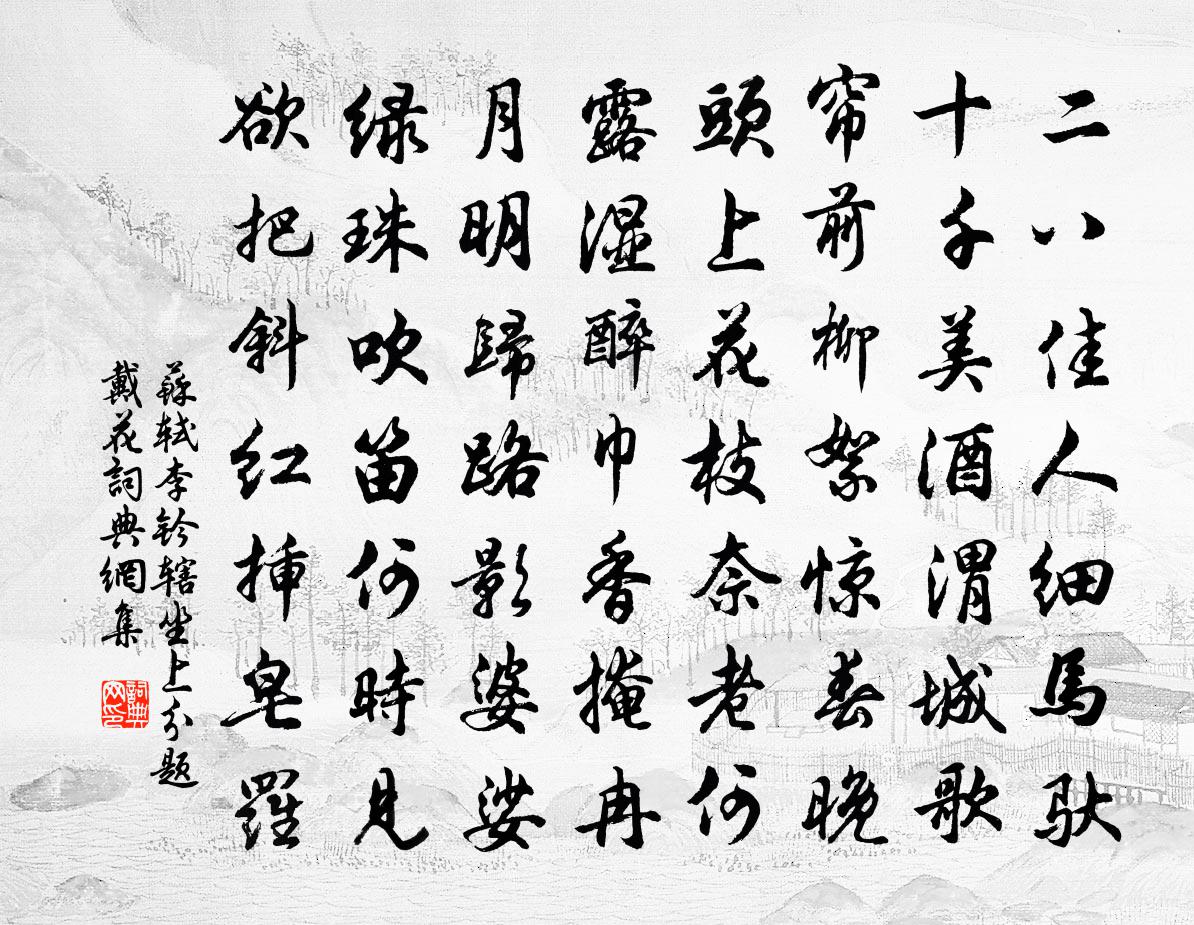 二八佳人细馬馱
十千美酒渭城歌
帘前柳絮惊春晚
頭上花枝奈老何
露湿醉巾香掩冉
月明歸路影婆娑
绿珠吹笛何時見
欲把斜红插皂羅
蘇轼李钤辖坐上分题
戴花詞典網集
詞典网印